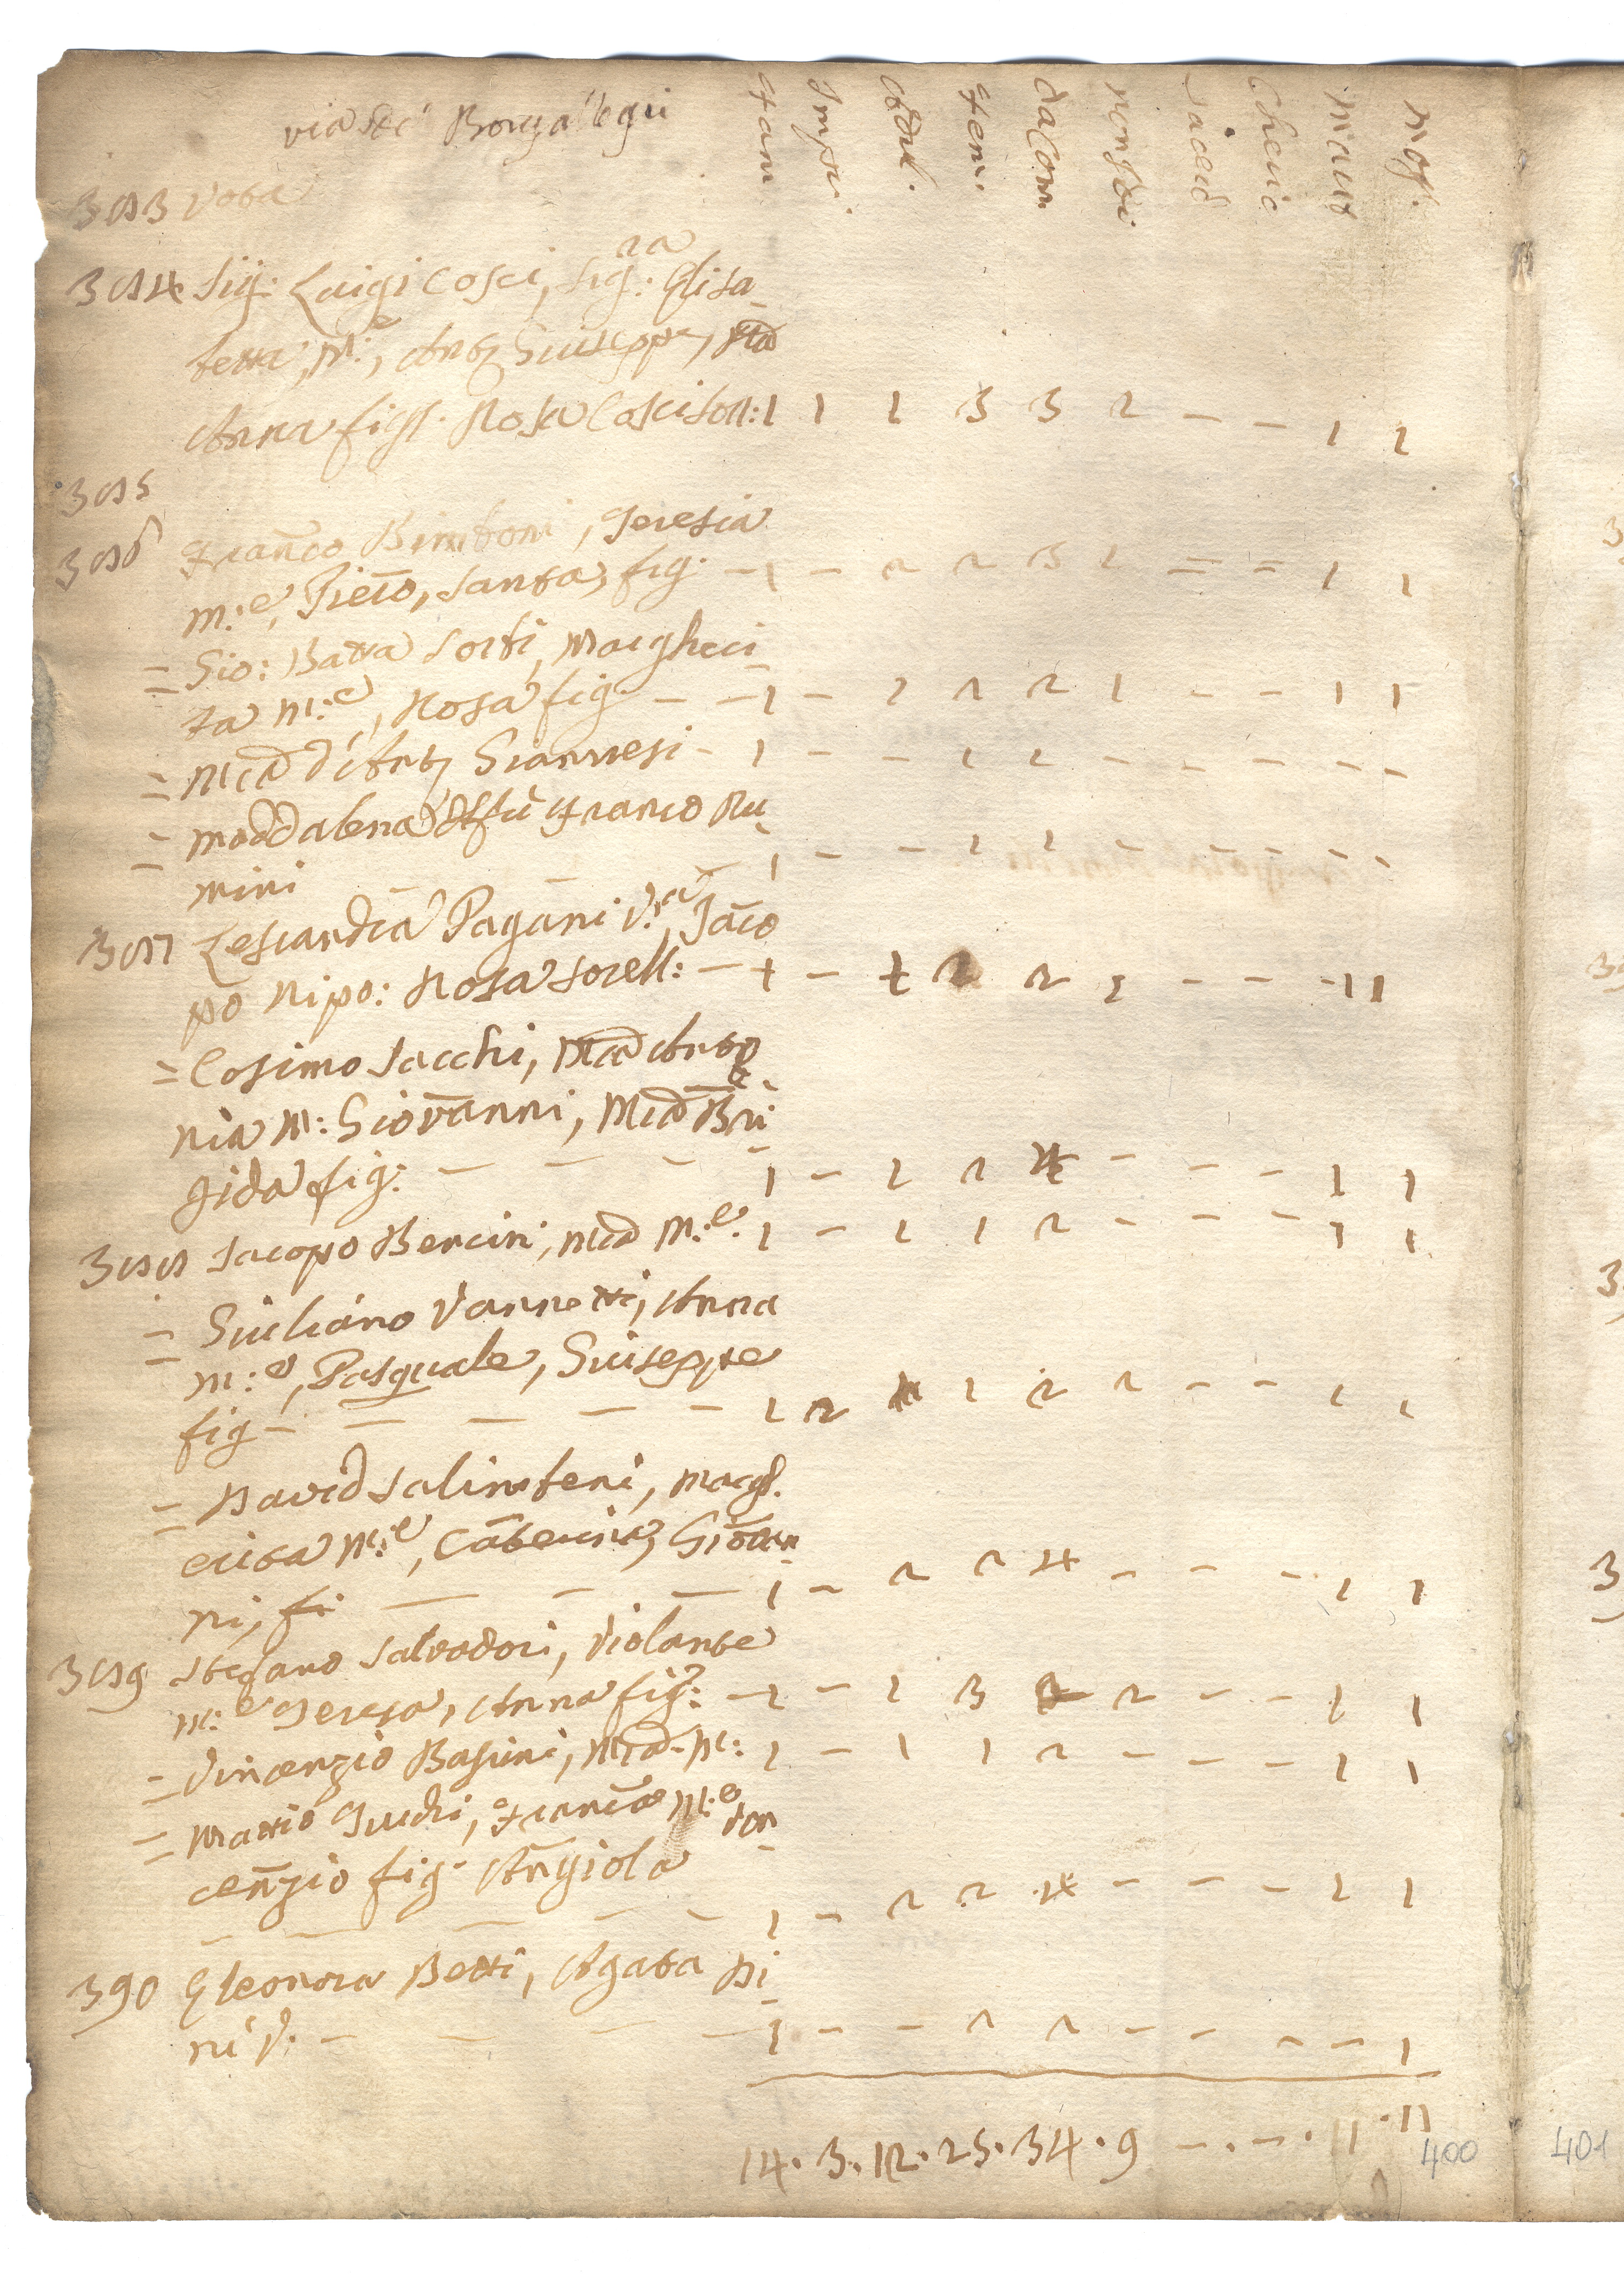 via de' Borgallegri
fam Impu. Adul. fem. da Com non Co: Sacerd Cheric mari mogl.
383 Vota
384 Sig: Luigi Cosci, Sig:ra Elisa
betta, M:e, Anto Giuseppe, Ma
Anna figl. Rosa Cosci Sor: 1 1 1 3 3 2 – – 1 1
385
386 Franco Bimboni, Teresia
m:e, Piero, Santa, fig. – 1 – 2 2 3 1 = = 1 1
= Gio: Batta Sorbi, Margheri
ta m:e, Rosa fig – – 1 – 1 2 2 1 – – 1 1
= Ma d'Anto Giannesi – 1 – – 1 1 – – – – –
= Maddalena Franco Ru
mini 1 – – 1 1 – – – – –
387 Lesandra Pagani V:a, Jaco
po Nipo: Rosa Sorell: – 1 – 1 2 2 1 – – – 1 1
= Cosimo Sacchi, Ma Anto
nia M: Giovanni, Ma Bri
gida fig: – – – 1 – 2 2 4 – – – 1 1
388 Jacopo Bencini, Ma M:e. 1 – 1 1 2 – – – 1 1
= Giuliano Vannetti, Anna
m:e, Pasquale, Giuseppe
fig – – – – – 1 2 1 1 2 2 – – 1 1
= David Salimbeni, Margh.
erita M:e, Caterina, Giovan
ni, fi – – – 1 – 2 2 4 – – – 1 1
389 Stefano Salvadori, Violante
m:e Teresa, Anna fig: – 1 – 1 3 2 2 – – 1 1
= Vincenzio Basini, Ma M: 1 – 1 1 2 – – – 1 1
= Mattio Fuchi, Franca M:e Vin
cenzio fig. Angiola
– – – – – 1 – 2 2 4 – – – 1 1
390 Eleonora Betti, Agata Pi
ni V. – – – – 1 – – 2 2 – – – – 1
14 . 3 . 12 . 25 . 34 . 9 – . – . 11 . 11
400 401